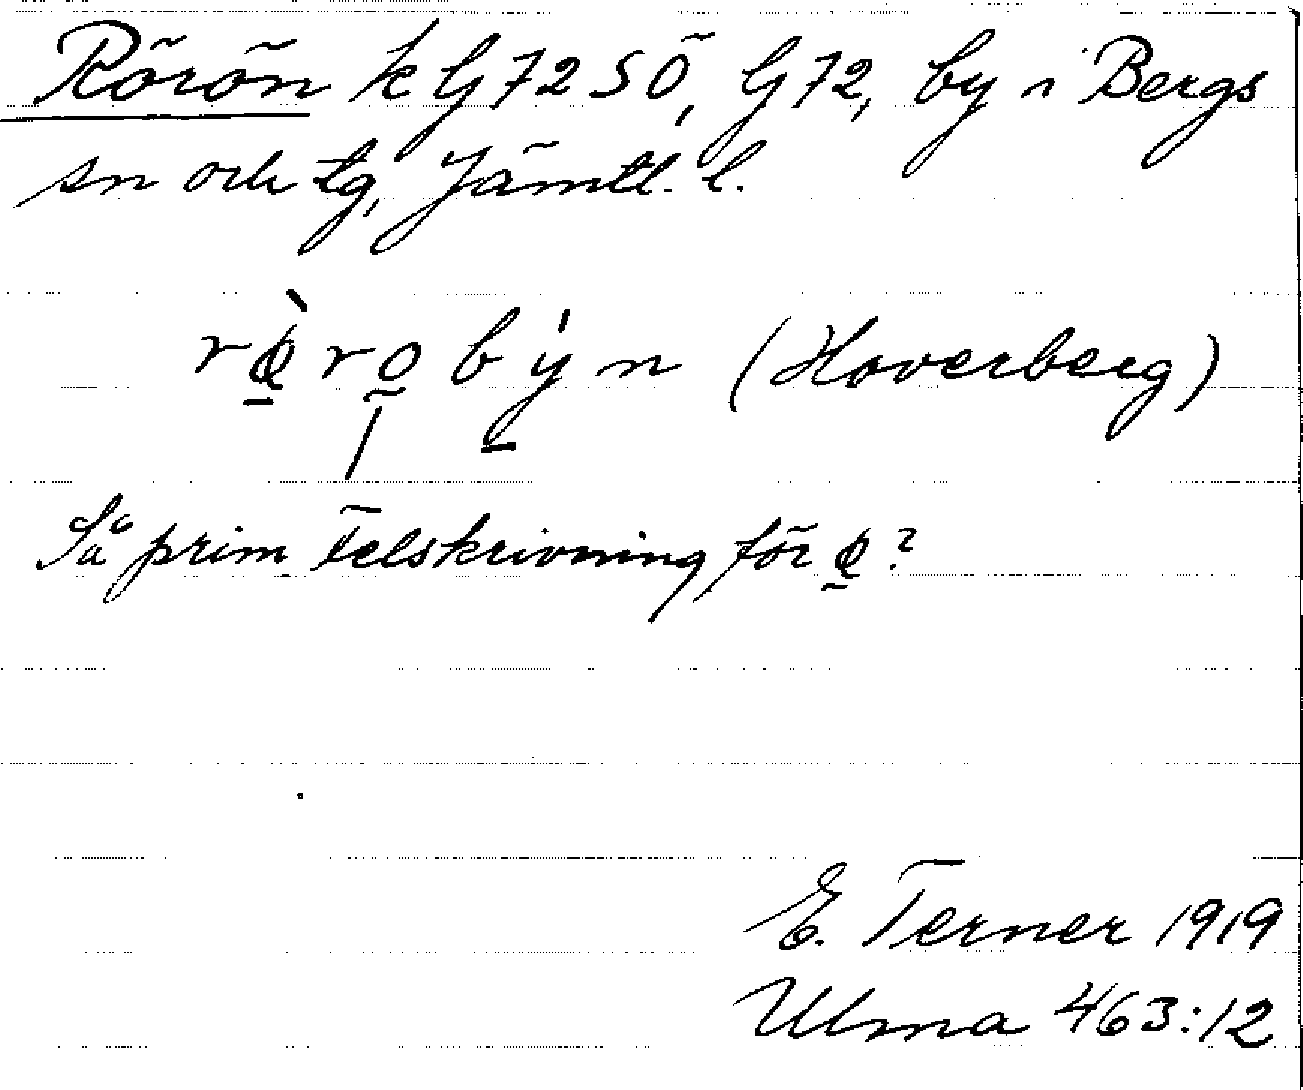 Rörön k G72 SÖ, G72, by i Bergs
sn och tg, Jämtl. l.
rø̱̀ro̱býn (Hoverberg)
Så prim Felskrivning för ø̱?
E. Terner 1919
Ulma 463:12